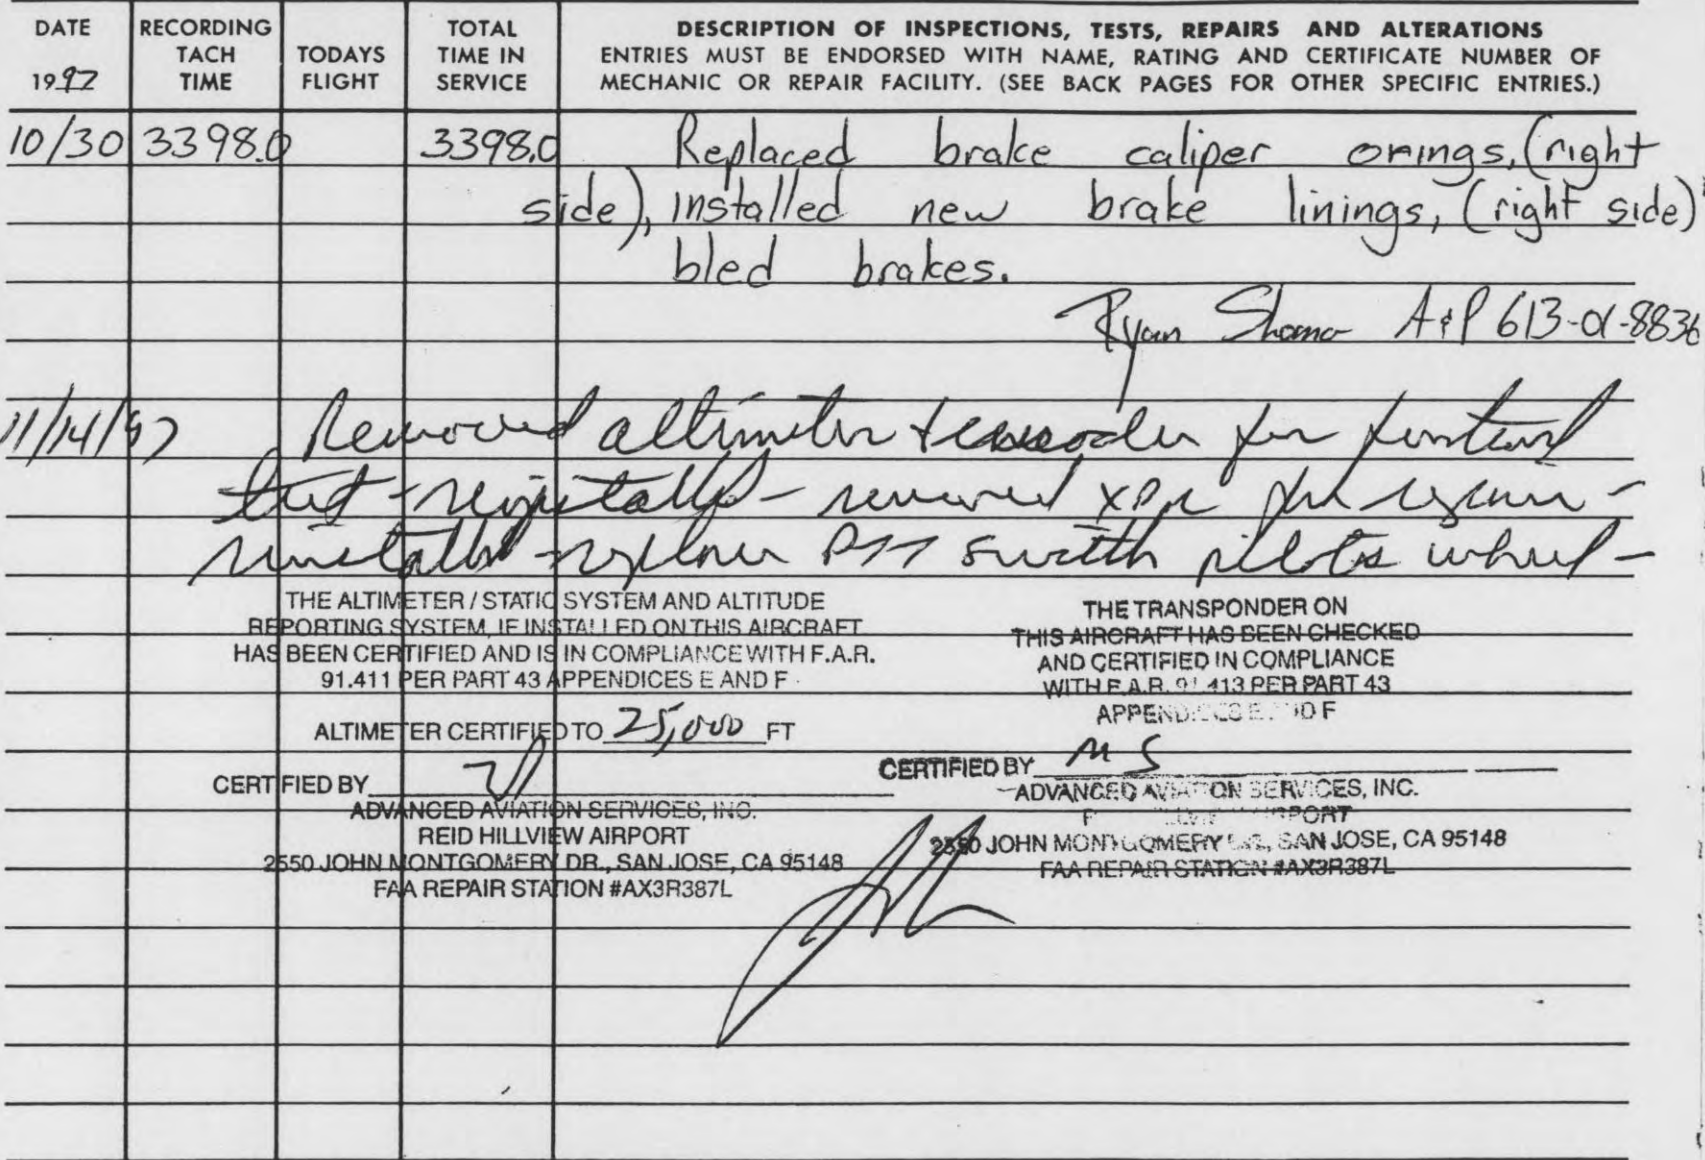 DATE
1997
RECORDING
TACH
TIME
TODAYS
FLIGHT
TOTAL
TIME IN
SERVICE
DESCRIPTION OF INSPECTIONS, TESTS, REPAIRS AND ALTERATIONS
ENTRIES MUST BE ENDORSED WITH NAME, RATING AND CERTIFICATE NUMBER OF
MECHANIC OR REPAIR FACILITY. (SEE BACK PAGES FOR OTHER SPECIFIC ENTRIES.)
10/30 3398.0 3398.0 Replaced brake caliper orings, (right
side), installed new brake linings, (right side)
bled brakes.
Ryan A&P 613-01-8836
11/14/97 Removed altimeter + for
test - - removed xpr for repair -
switch pilots wheel -
THE ALTIMETER / STATIC SYSTEM AND ALTITUDE
REPORTING SYSTEM, IF INSTALLED ON THIS AIRCRAFT
HAS BEEN CERTIFIED AND IS IN COMPLIANCE WITH F.A.R.
91.411 PER PART 43 APPENDICES E AND F
ALTIMETER CERTIFIED TO 25,000 FT
CERTIFIED BY
ADVANCED AVIATION SERVICES, INC.
REID HILLVIEW AIRPORT
2550 JOHN MONTGOMERY DR., SAN JOSE, CA 95148
FAA REPAIR STATION #AX3R387L
THE TRANSPONDER ON
THIS AIRCRAFT HAS BEEN CHECKED
AND CERTIFIED IN COMPLIANCE
WITH F.A.R. 91.413 PER PART 43
APPENDICES E AND F
CERTIFIED BY M S
ADVANCED AVIATION SERVICES, INC.
AIRPORT
2550 JOHN MONTGOMERY DR., SAN JOSE, CA 95148
FAA REPAIR STATION #AX3R387L